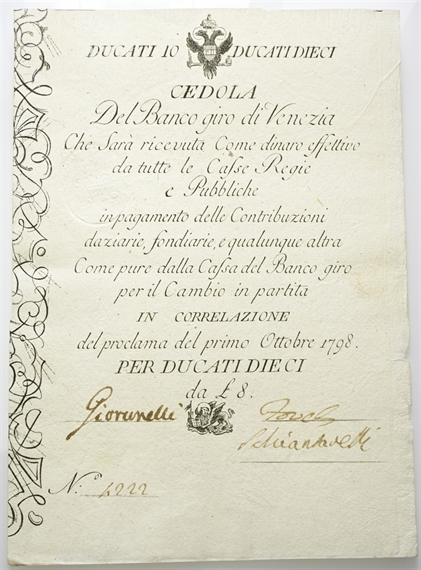 DUCATI 10 DUCATI DIECI
CEDOLA
Del Banco giro di Venezia
Che Sarà ricevuta Come dinaro effettivo
da tutte le Casse Regie
e Pubbliche
in pagamento delle Contribuzioni
daziarie, fondiarie, e qualunque altra
Come pure dalla Cassa del Banco giro
per il Cambio in partita
IN CORRELAZIONE
del proclama del primo Ottobre 1798.
PER DUCATI DIECI
da £ 8.
Giovanelli
N.º 4222